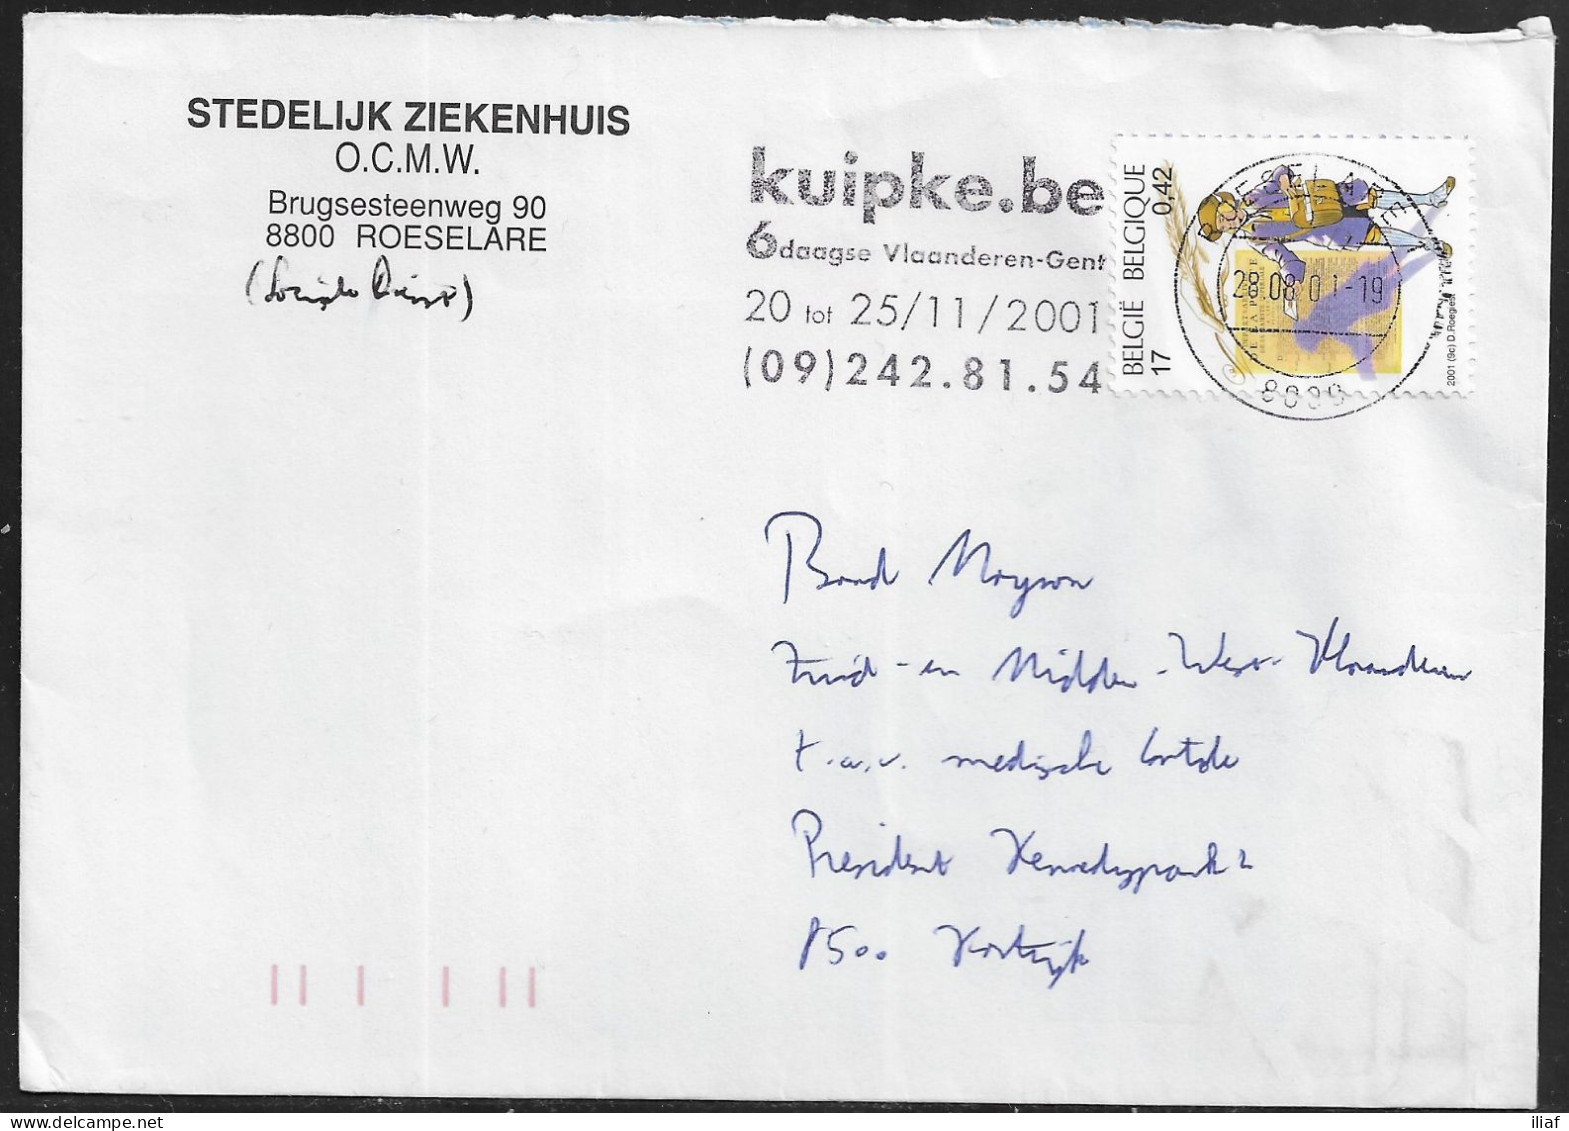 STEDELIJK ZIEKENHUIS
O.C.M.W.
Brugsesteenweg 90
8800 ROESELARE
(Sociale Dienst)
kuipke.be
6daagse Vlaanderen-Gent
20 tot 25/11/2001
(09)242.81.54
BELGIË BELGIQUE
17 0,42
ROESELARE
28.08.01-19
8800
2001 (9c) D.Roegiest
Bond Moyson
Zuid-en Midden-West-Vlaanderen
t.a.v. medische
President Kennedypark 2
8500 Kortrijk
iliaf